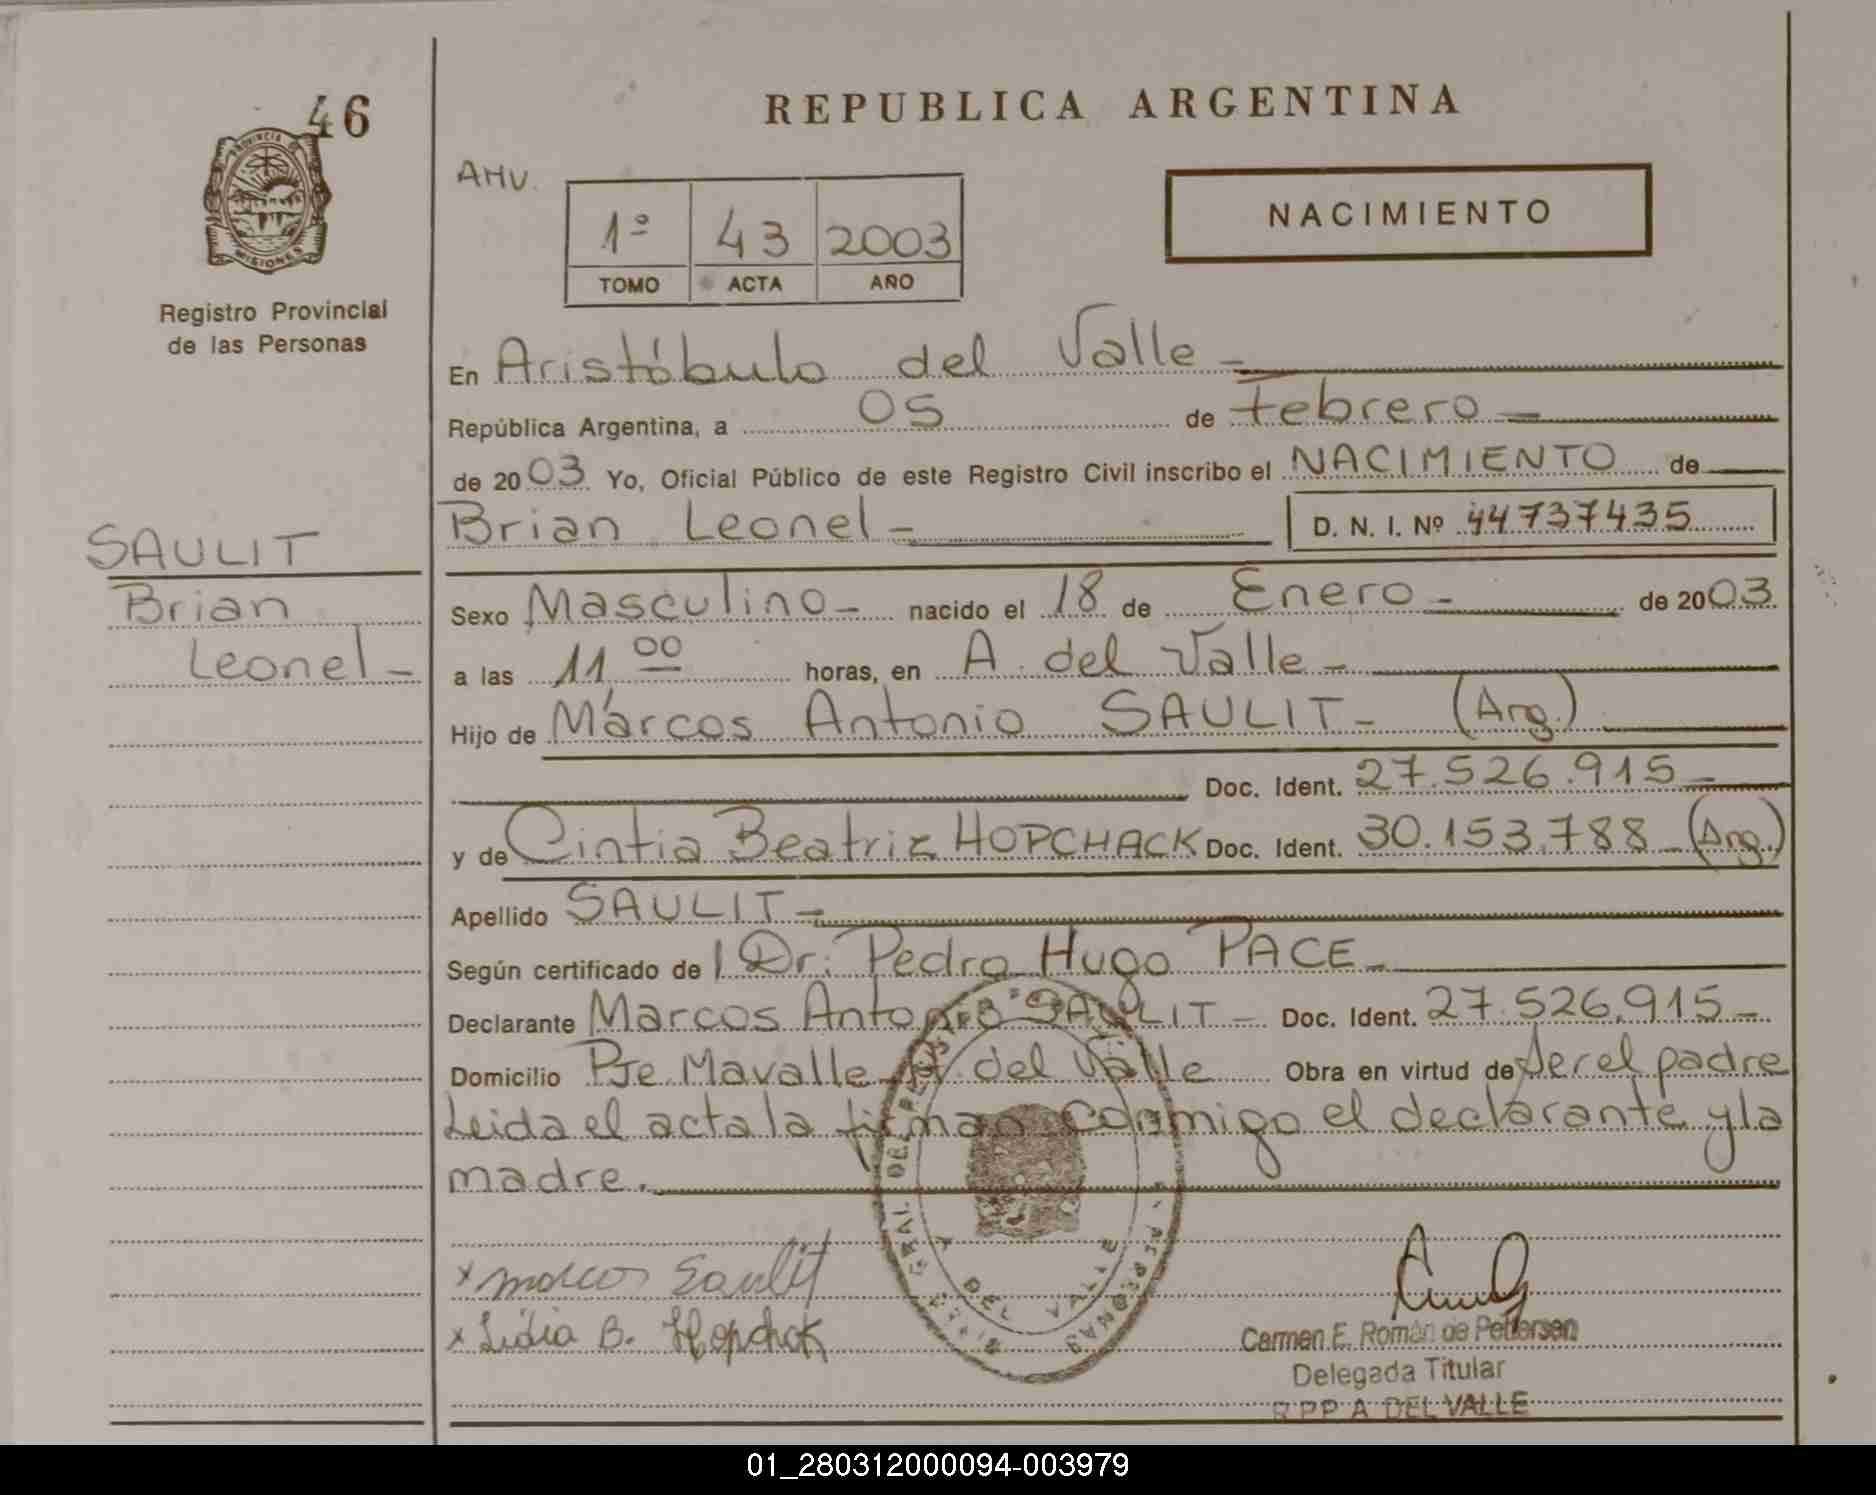 46
PROVINCIA
MISIONES
Registro Provincial
de las Personas
SAULIT
Brian
Leonel -
REPUBLICA ARGENTINA
AHV.
1º 43 2003
TOMO ACTA AÑO
NACIMIENTO
En Aristóbulo del Valle -
República Argentina, a 05 de Febrero -
de 2003 Yo, Oficial Público de este Registro Civil inscribo el NACIMIENTO de
Brian Leonel - D. N. I. Nº 44737435
Sexo Masculino - nacido el 18 de Enero - de 2003
a las 11 00 horas, en A. del Valle -
Hijo de Marcos Antonio SAULIT - (Arg.)
Doc. Ident. 27.526.915 -
y de Cintia Beatriz HOPCHACK Doc. Ident. 30.153.788 - (Arg.)
Apellido SAULIT -
Según certificado de Dr. Pedro Hugo PACE -
Declarante Marcos Antonio SAULIT - Doc. Ident. 27.526.915 -
Domicilio Pje. Mavalle A. del Valle Obra en virtud de ser el padre
Leida el acta la firman conmigo el declarante y la
madre.
x marcos Saulit
x B. Hopchak
DEL VALLE
Carmen E. Román de Pettersen
Delegada Titular
R.P.P. A. DEL VALLE
01_280312000094-003979